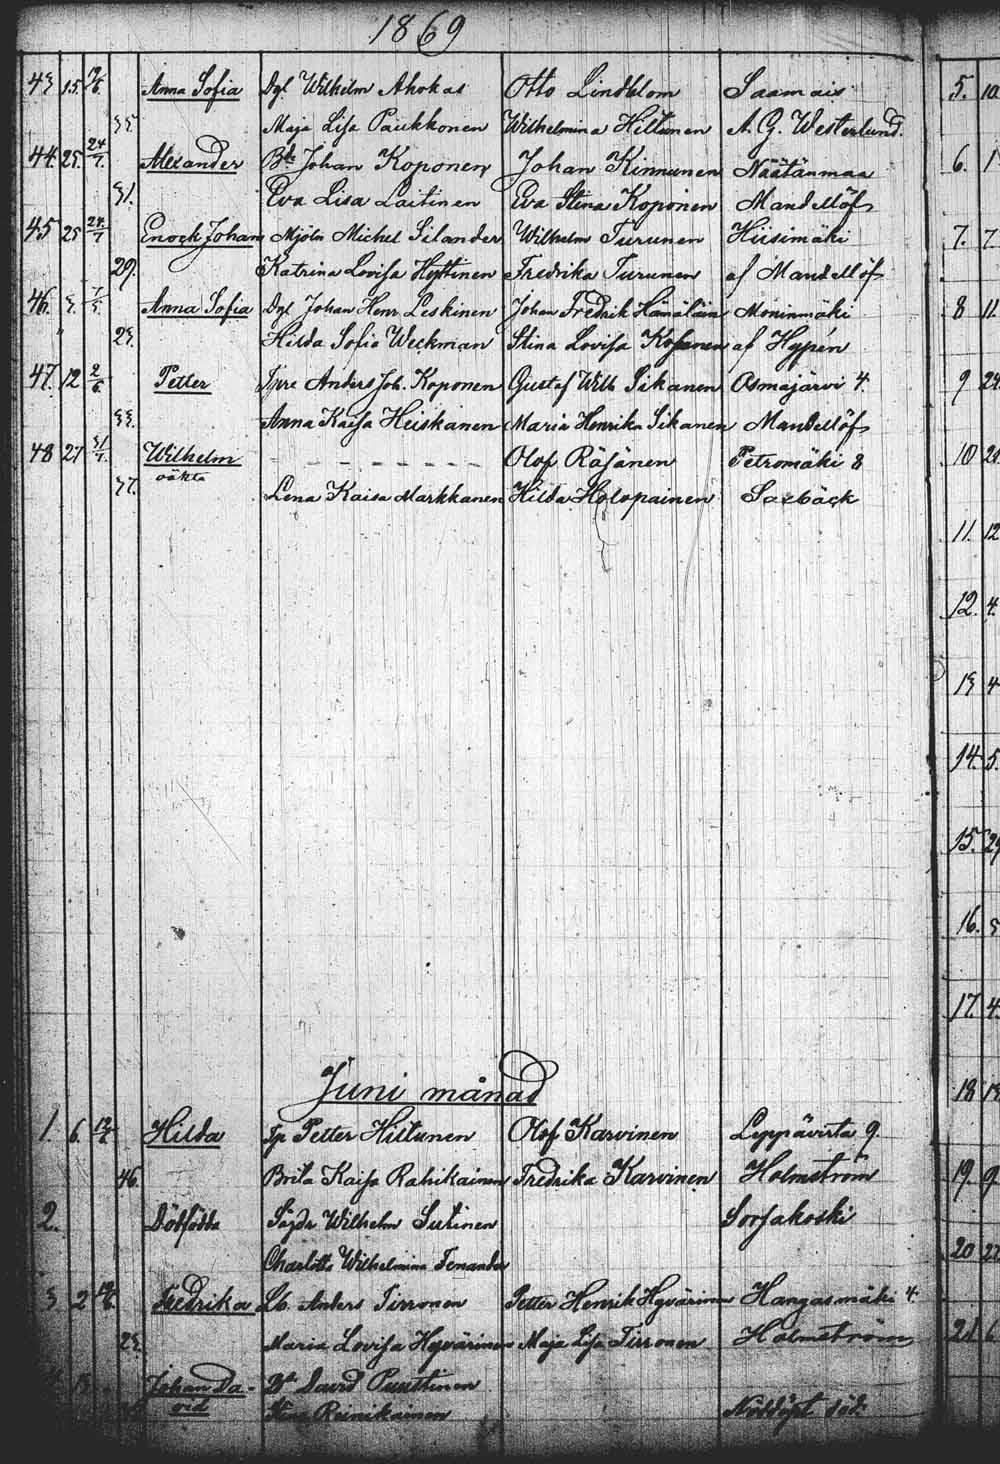 1869
43 15. 19/6. Anna Sofia Dgl Wilhelm Ahokas Otto Lindblom Saamais
33. Maja Lisa Paukkonen Wilhelmina Hiltunen A. G. Westerlund.
44. 25. 24/7. Alexander Johan Koponen Johan Kinnunen Näätänmaa
31. Eva Lisa Laitinen Eva Stina Koponen Mandellöf
45 25 24/7 Enock Johan Mjöln Michel Silander Wilhelm Turunen Hiisimäki
29. Katrina Lovisa Hyttinen Fredrika Turunen af Mandellöf
46. 3. Anna Sofia Dgl Johan Henr Leskinen Johan Fredrik Hämäläin Moninmäki
23. Hilda Sofia Weckman Stina Lovisa Kosunen af Hypén
47. 12 2/6 Petter Anders Joh. Koponen Gustaf Wilh Sikanen Osmajärvi 4.
33. Anna Kaisa Heiskanen Maria Henrika Sikanen Mandellöf
48 27 31/7. Wilhelm - - - - - - - - Olof Räsänen Petromäki 8
oäkta
37. Lena Kaisa Markkanen Hilda Holopainen Saxbäck
Juni månad
1. 6. Hilda Petter Hiltunen Olof Karvinen Leppävirta 9.
46. Brita Kaisa Rahikainen Fredrika Karvinen Holmström
2. Dödfödda Wilhelm Sutinen Sorsakoski
Charlotta Wilhelmina Tenander
3. 2 Fredrika Anders Tirronen Petter Henrik Hyvärinen Hangasmäki 4.
23. Maria Lovisa Hyvärinen Maja Lisa Tirronen Holmström
Johan Da-
vid David Puustinen
Stina Reinikainen Nöddöpt död.
5. 10
6. 1
7. 7
8 11.
9 24
10 20
11. 12
12. 4.
13 4
14. 5.
15. 29
16. 3
17. 4.
18 13
19. 9
20 27
21. 6